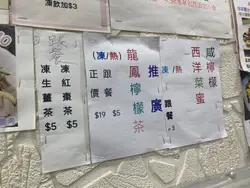 凍飲加$3
咸檸檬
西洋菜蜜
(凍/熱)
跟餐
+3
推廣
龍鳳檸檬茶
(凍/熱)
跟餐 $5
正價 $19
凍紅棗茶 $5
凍生薑茶 $5